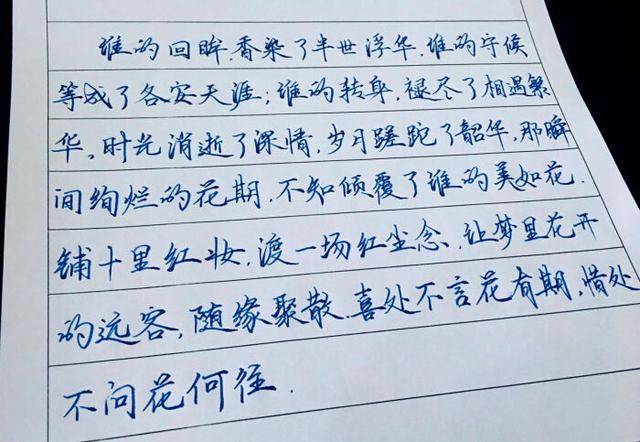 谁的回眸,香染了半世浮华,谁的守候
等成了各安天涯;谁的转身,褪尽了相遇繁
华,时光消逝了深情,岁月蹉跎了韶华,那瞬
间绚烂的花期,不知倾覆了谁的美如花.
铺十里红妆,渡一场红尘念,让梦里花开
的远客,随缘聚散.喜处不言花有期,惜处
不问花何径.